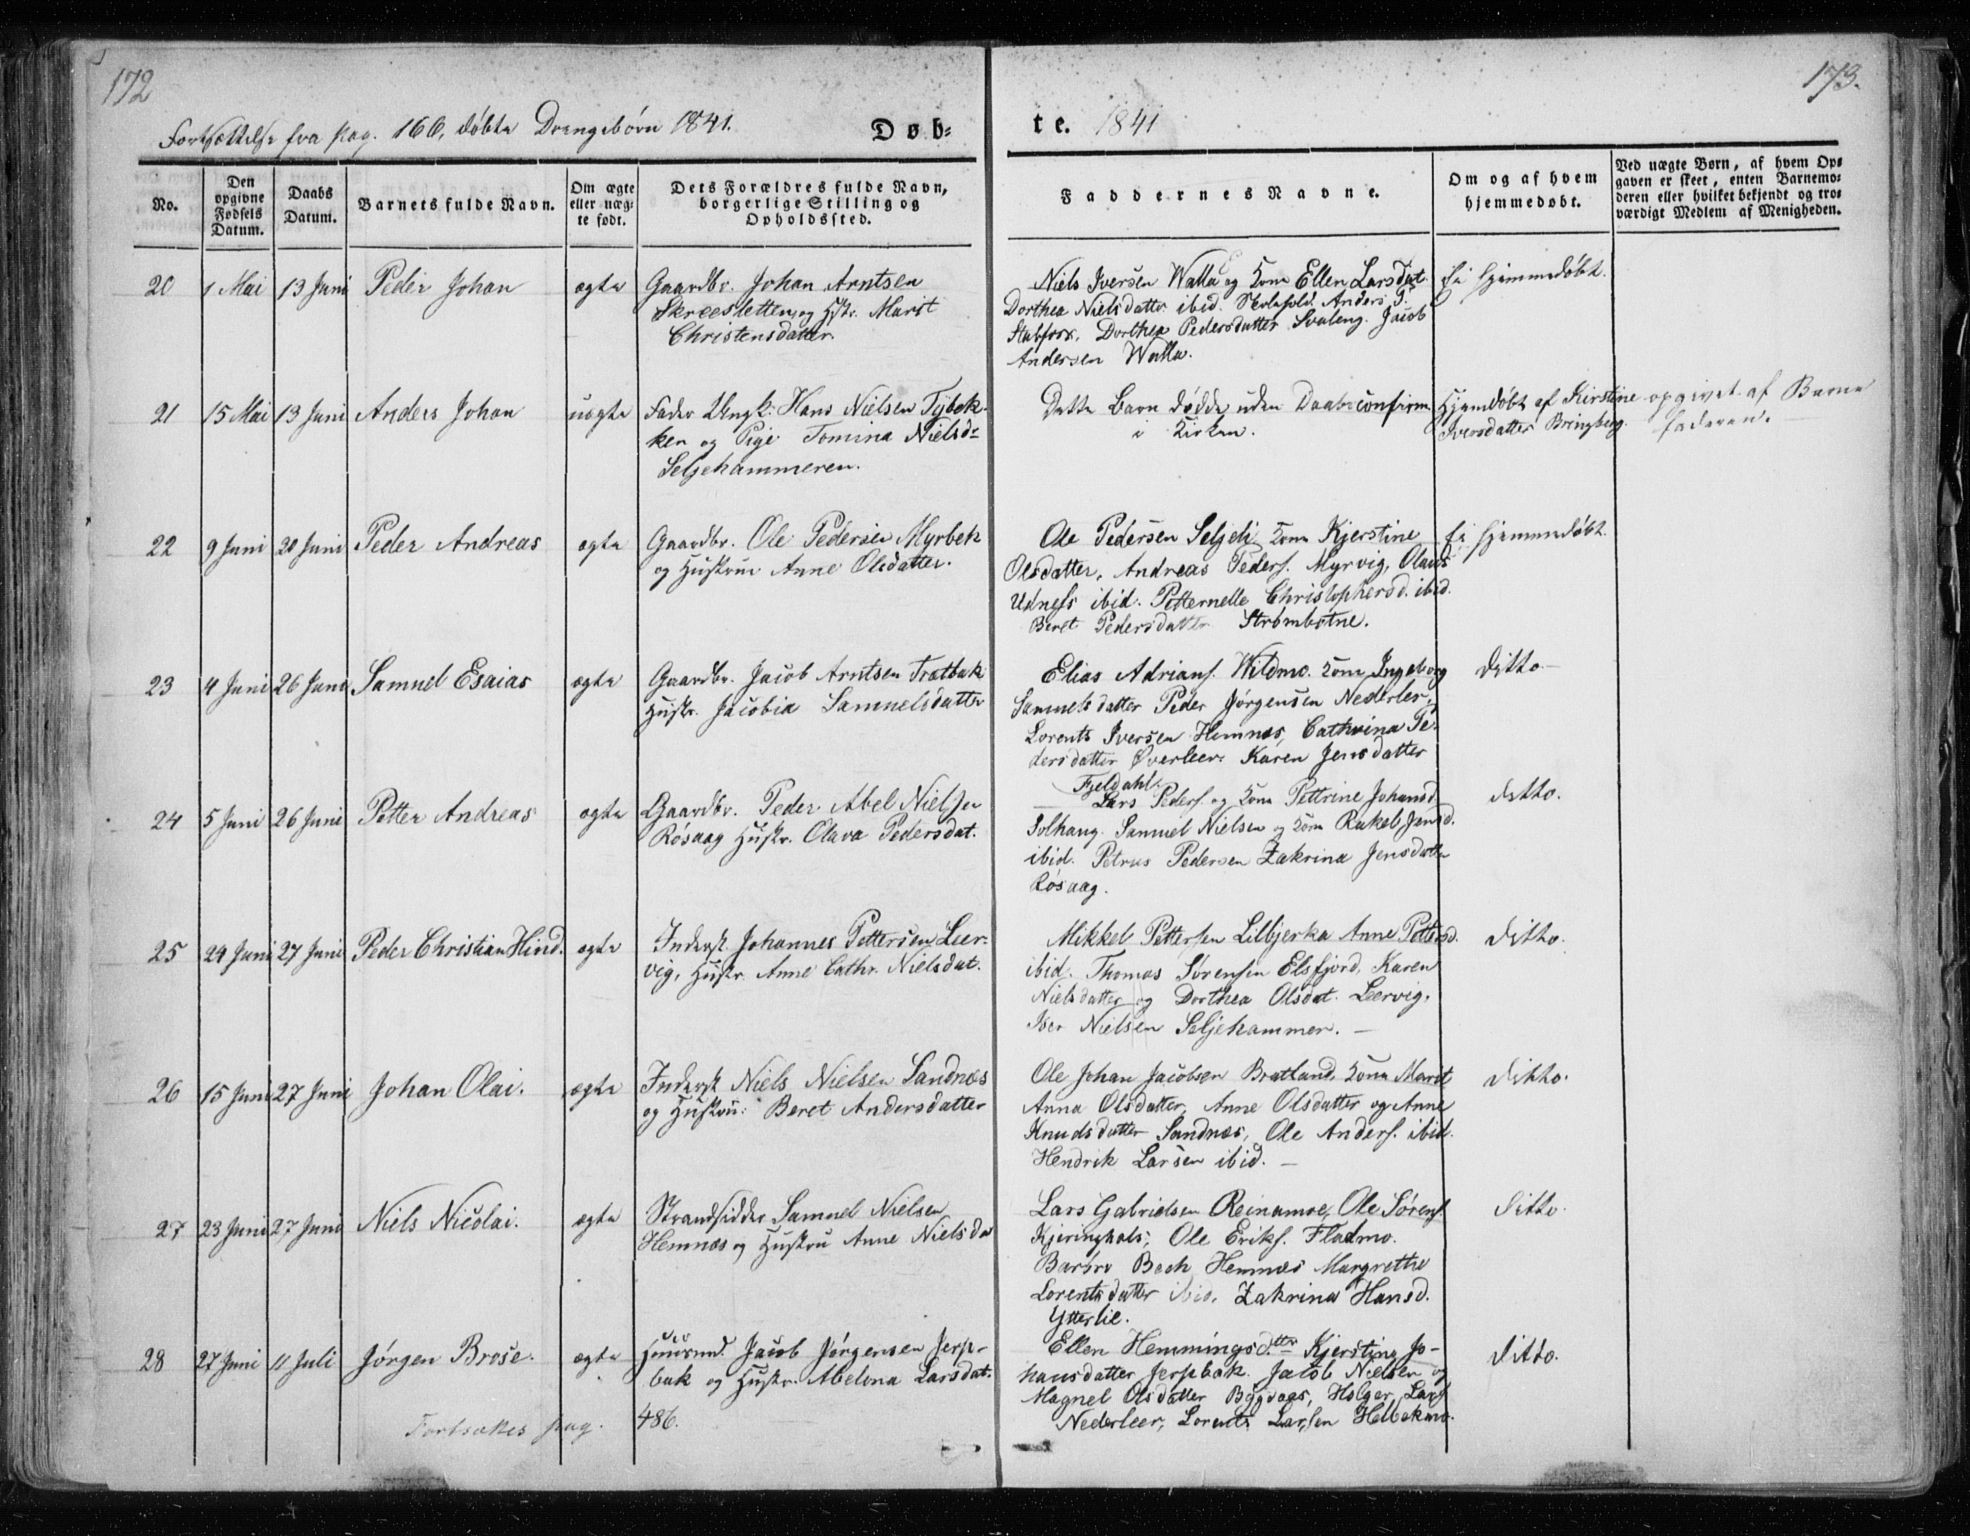 172
173.
Fortsættelse fra pag. 166, døbte Drengebørn 1841.
Døb=
te. 1841
No.
Den opgivne Fødsels Datum.
Daabs Datum.
Barnets fulde Navn.
Om ægte eller uæg- te født.
Dets Forældres fulde Navn, borgerlige Stilling og Opholdssted.
Faddernes Navne.
Om og af hvem hjemmedøbt.
Ved uægte Børn, af hvem Op=
gaven er skeet, enten Barnemo=
deren eller hvilket bekjendt og tro=
værdigt Medlem af Menigheden.
20 1 Mai 13 Juni Peder Johan ægte
Gaardbr. Johan Arntsen
Skresletten og Hstr. Marit
Christensdatter.
Niels Iversen Walla og Kone Ellen Larsdat.
Dorthea Nielsdatter ibid. Anders P.
Stabfors, Dorthea Pedersdatter Svaleng. Jacob
Andersen Walla.
Ei hjemmedøbt.
21 15 Mai 13 Juni Anders Johan uægte
Fader Ungk. Hans Nielsen Tybek-
ken og Pige Tomina Nielsdr
Seljehammeren.
Dette Barn døde uden Daabsconfirm.
i Kirken.
Hjemdøbt af Kirstine
Iversdatter Bringberg.
opgivet af Barne
faderen.
22 9 Juni 20 Juni Peder Andreas ægte
Gaardbr. Ole Pedersen Myrbek
og Hustrue Anne Olsdatter.
Ole Pedersen Seljeli, Kone Kjerstine
Olsdatter, Andreas Peders. Myrvig, Olaus
Udness ibid. Petternelle Christophersd. ibid.
Beret Pedersdatter Strømbotne.
Ei hjemmedøbt.
23 4 Juni 26 Juni Samuel Esaias ægte
Gaardbr. Jacob Arntsen Trætbak
Hustr. Jacobia Samuelsdatter
Elias Adrians. Wildmo. Kone Ingeborg
Samuelsdatter Peder Jørgensen Nederler,
Lorents Iversen Hemnes, Cathrina Pe-
dersdatter Øverleer. Karen Jensdatter
Fjeldahl.
Ditto
24 5 Juni 26 Juni Petter Andreas ægte
Gaardbr. Peder Abel Nielsen
Røsaag Hustr. Olava Pedersdat.
Lars Peders. og Kone Pettrine Johansd.
Solhaug. Samuel Nielsen og Kone Rakel Jensd.
ibid. Petrus Pedersen Zakrina Jensdatter
Røsaag.
Ditto.
25 24 Juni 27 Juni Peder Christian Hind. ægte
Inderst Johannes Pettersen Leer-
vig, Hustr. Anne Cathr. Nielsdat.
Mikkel Pettersen Lilbjerka Anne Pettersd.
ibid. Thomas Sørensen Elsfjord, Karen
Nielsdatter og Dorthea Olsdat. Leervig.
Iver Nielsen Seljehammer.
Ditto.
26 15 Juni 27 Juni Johan Olai. ægte
Inderst Niels Nielsen Sandnes
og Hustru: Beret Andersdatter
Ole Johan Jacobsen Bratland. Kone Maret
Anna Olsdatter, Anne Olsdatter og Anne
Knudsdatter Sandnes, Ole Anders. ibid.
Hendrik Larsen ibid.
Ditto.
27 23 Juni 27 Juni Niels Nicolai. ægte
Strandsidder Samuel Nielsen
Hemnæs og Hustru Anne Nielsda
Lars Gabrielsen Reinamoe, Ole Sørens.
Kjeringhals, Ole Eriks. Fladmo.
Barbro Bech Hemnæs Margrethe
Lorentsdatter ibid. Zakrina Hansd.
Ytterlie.
Ditto.
28 27 Juni 11 Juli Jørgen Brose. ægte
Huusmd. Jacob Jørgensen Jerp-
bak og Hustr. Abelona Larsdat.
Ellen Hemmingsdttr Kjerstine Jo-
hansdatter Jerpbak. Jacob Nielsen og
Magnel Olsdatter Bygdaas, Holger Lars
Nederleer, Lorents Larsen Helbekmo.
Ditto.
Fortsættes pag. 486.